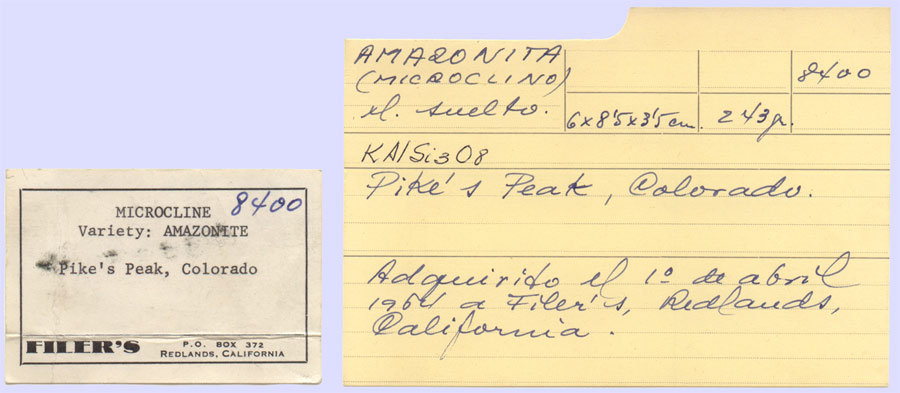 MICROCLINE 8400
Variety: AMAZONITE
Pike's Peak, Colorado
FILER'S
P.O. BOX 372
REDLANDS, CALIFORNIA
AMAZONITA
(MICROCLINO)
xl. suelto.
6x8'5x3'5 cm.
243 gr.
8400
KAlSi3O8
Pike's Peak, Colorado.
Adquirito el 1º de abril
1964 a Filer's, Redlands,
California.